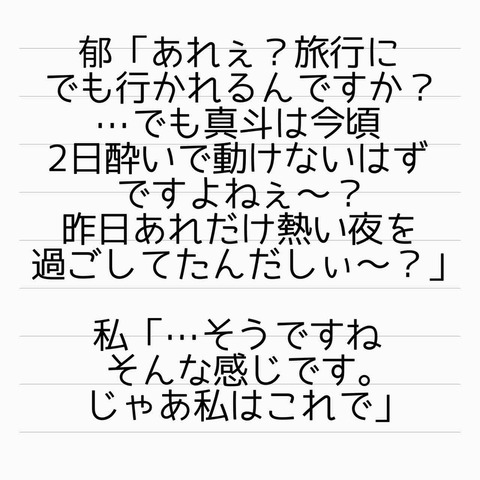 郁「あれぇ？旅行に
でも行かれるんですか？
…でも真斗は今頃
2日酔いで動けないはず
ですよねぇ〜？
昨日あれだけ熱い夜を
過ごしてたんだしぃ〜？」
私「…そうですね
そんな感じです。
じゃあ私はこれで」